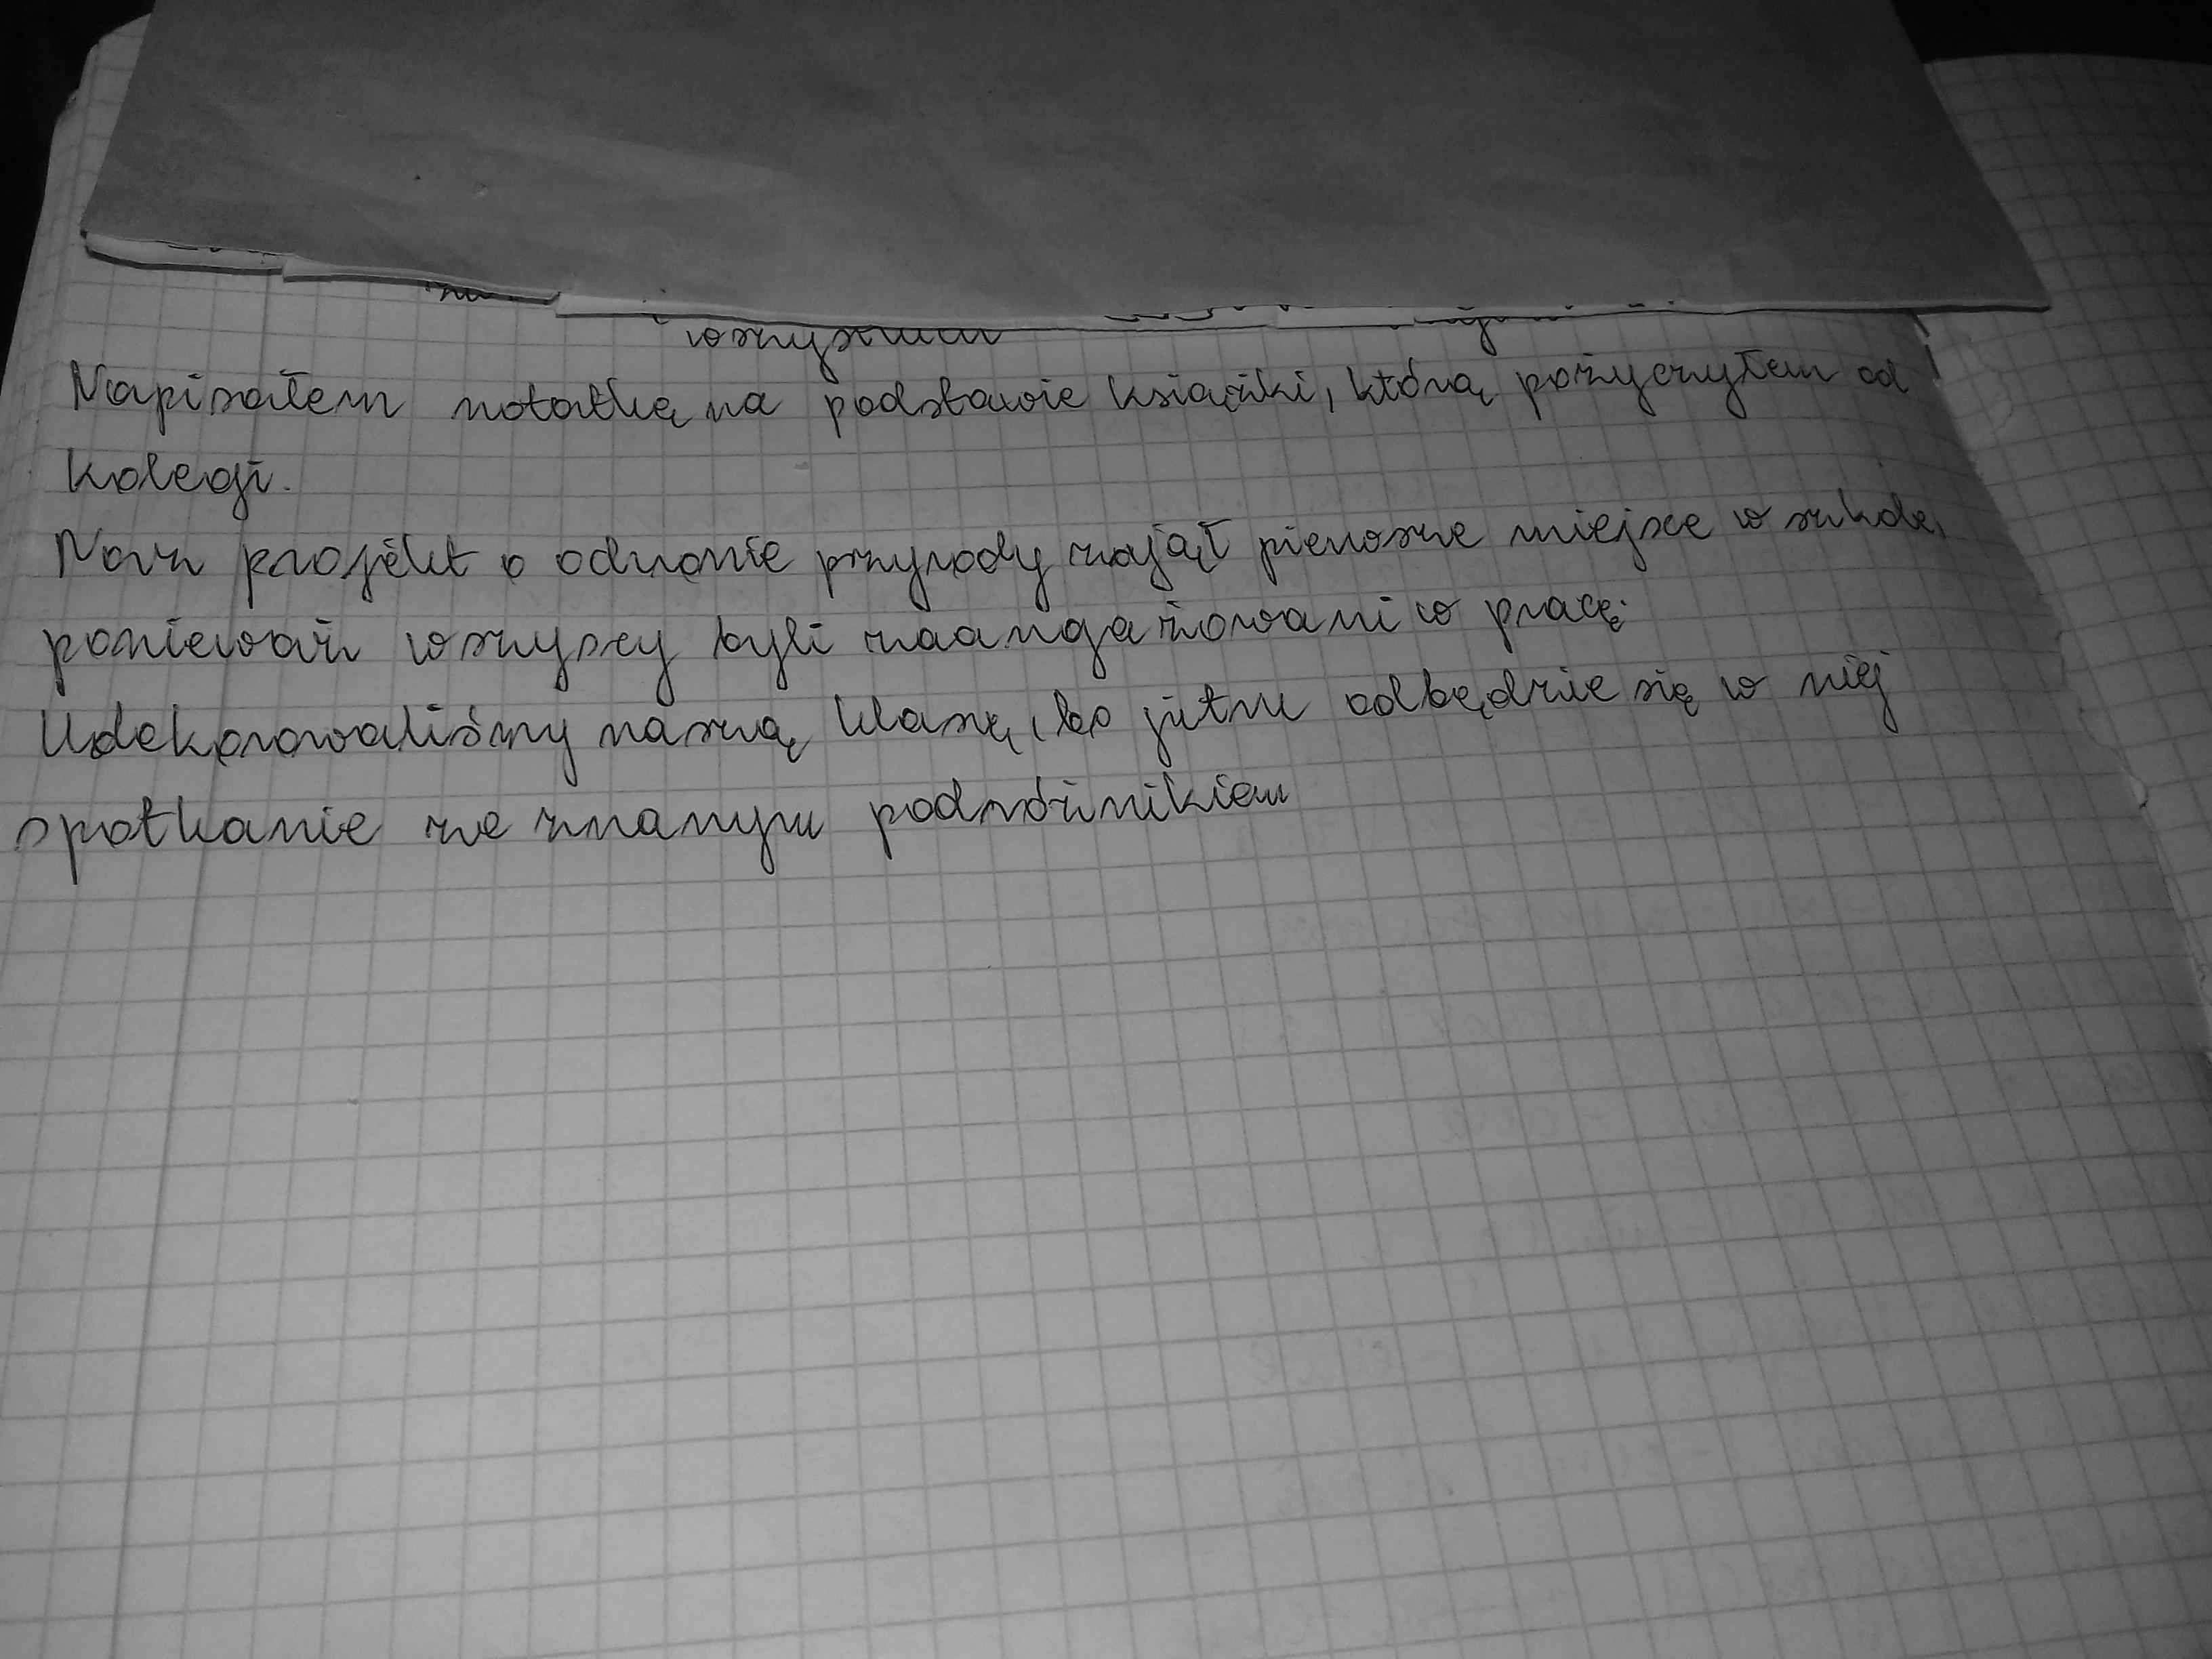 Napisałem notatkę na podstawie książki, którą pożyczyłem od
kolegi.
Nasz projekt o ochronie przyrody zajął pierwsze miejsce w szkole,
ponieważ wszyscy byli zaangażowani w pracę.
Udekorowaliśmy naszą klasę, bo jutro odbędzie się w niej
spotkanie ze znanym podróżnikiem